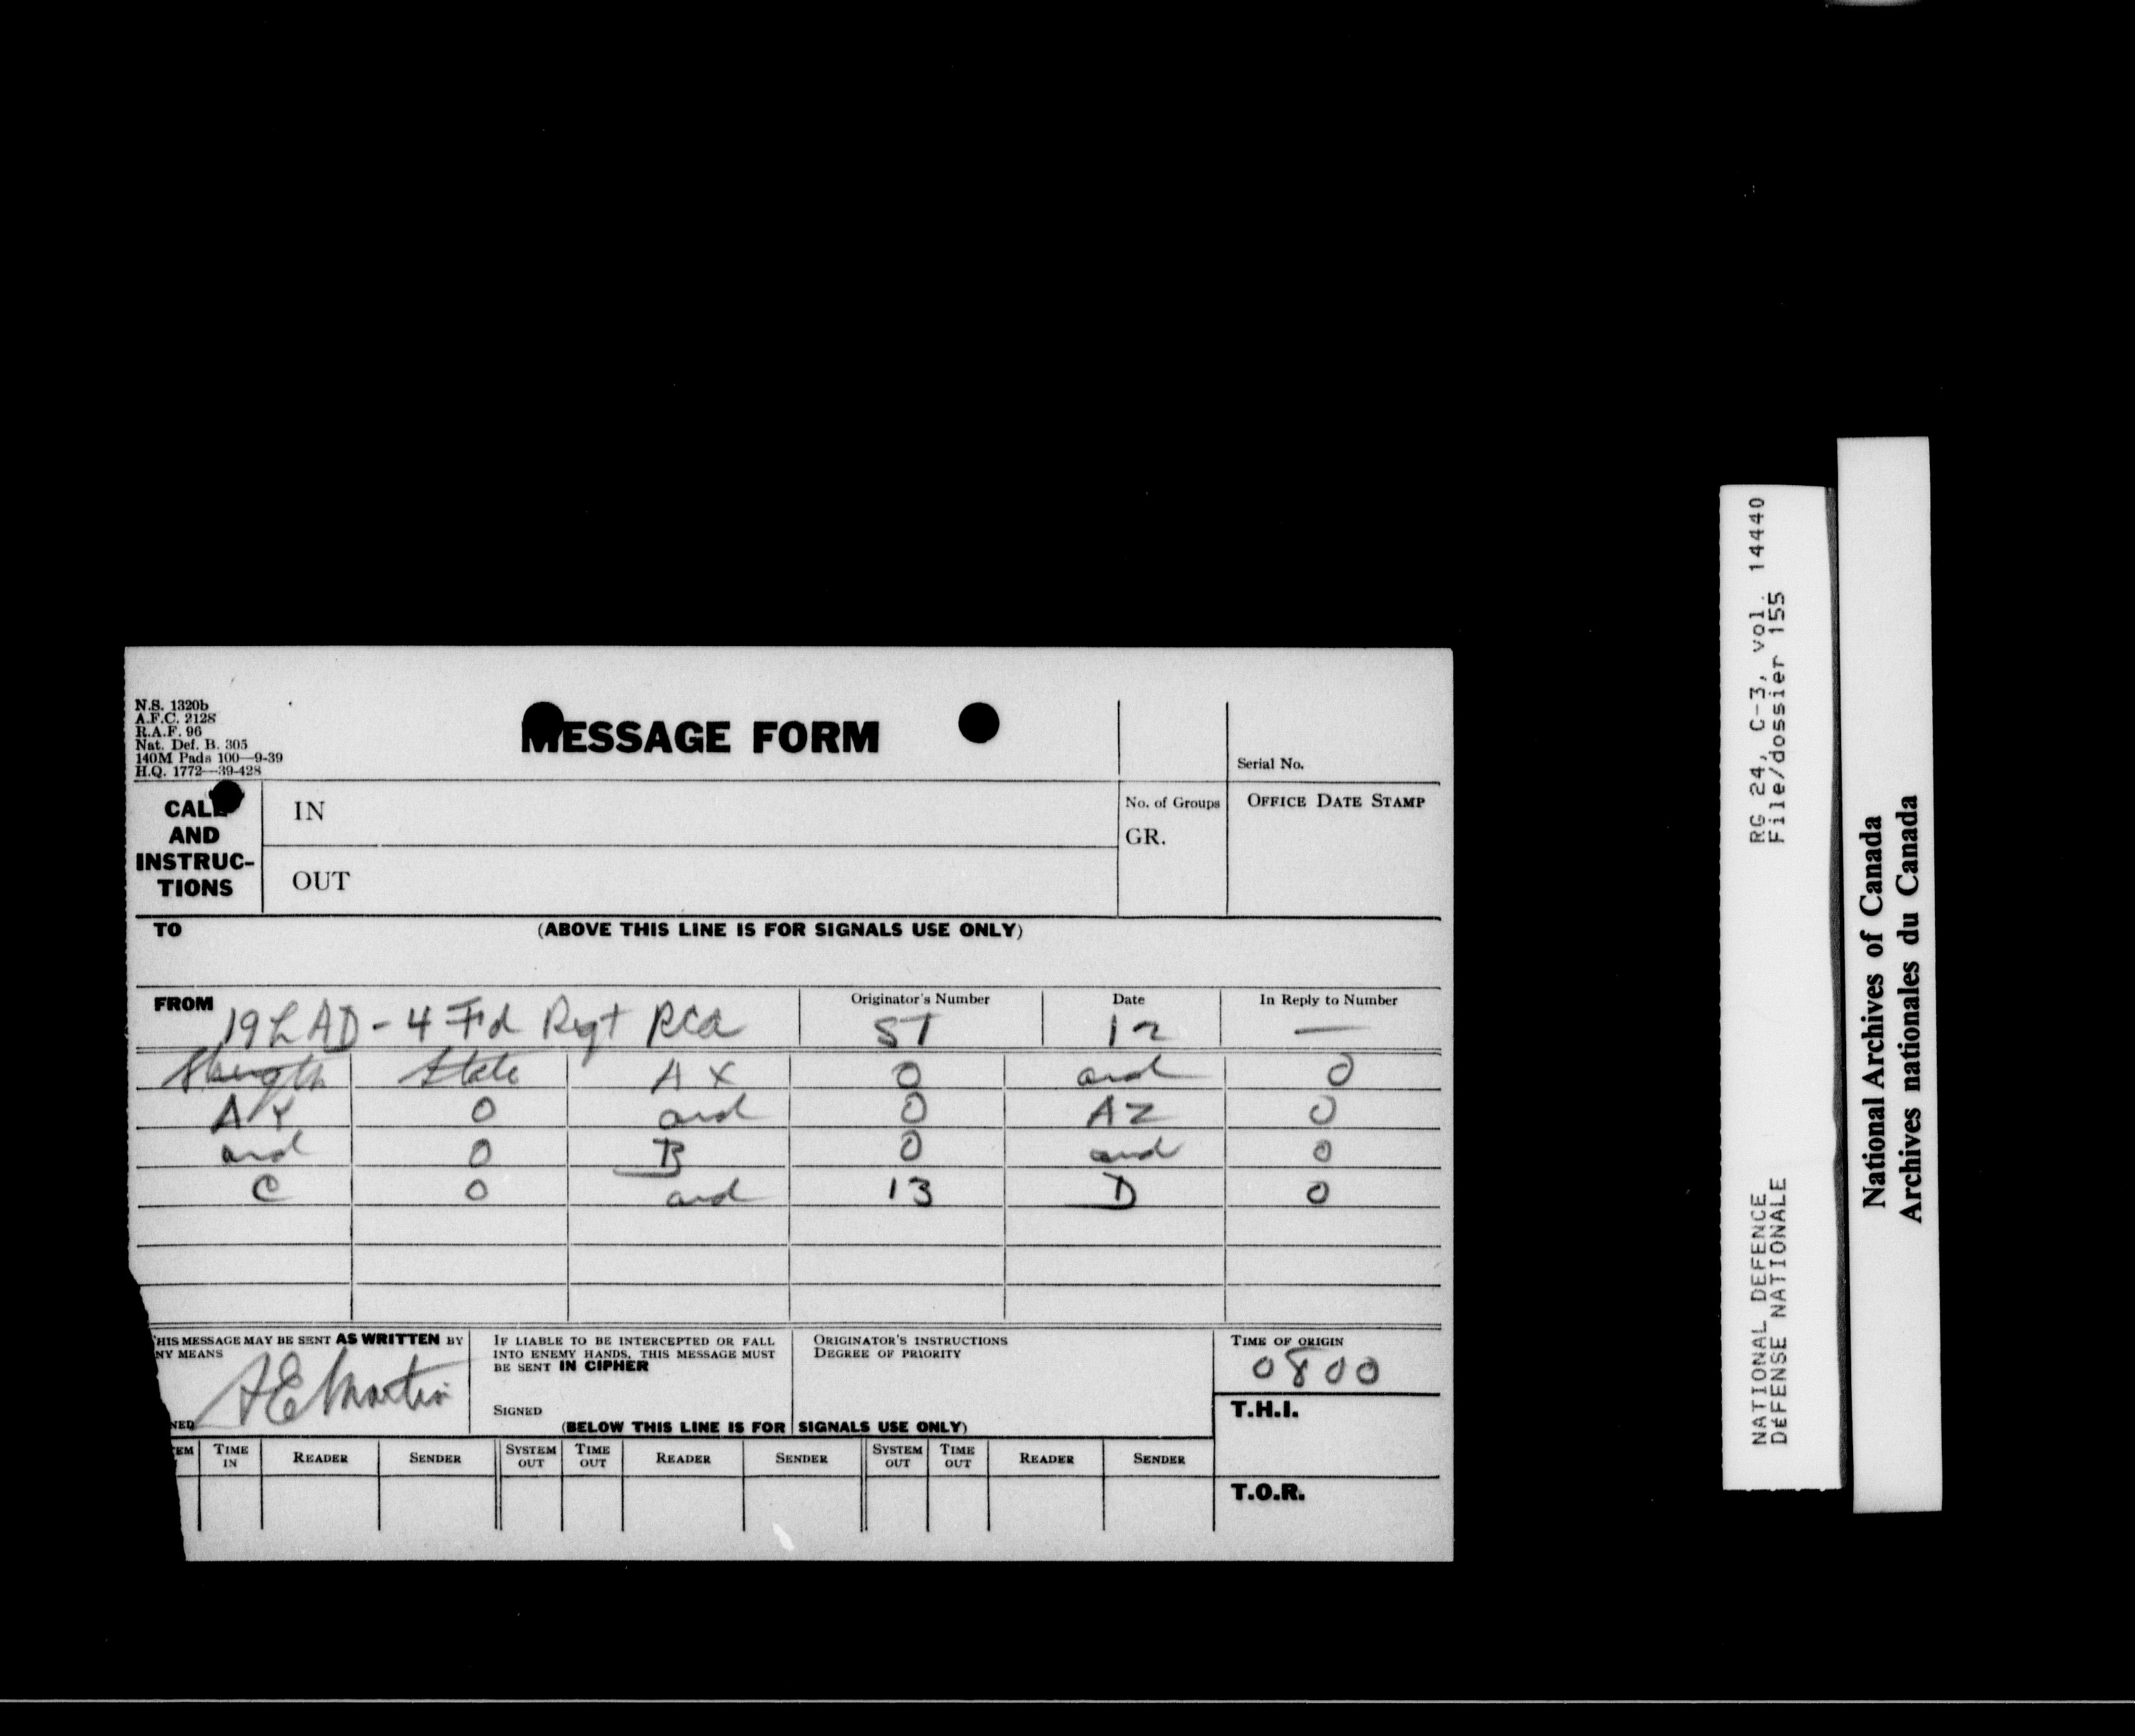 N.S. 1320b
A.F.C. 2128
R.A.F. 96
Nat. Def. B. 305
140M Pads 100—9-39
H.Q. 1772—39-428
MESSAGE FORM
Serial No.
CALL AND INSTRUC-TIONS
IN
No. of Groups
GR.
OFFICE DATE STAMP
OUT
TO
(ABOVE THIS LINE IS FOR SIGNALS USE ONLY)
FROM 19 LAD - 4 Fd Regt RCA
Originator's Number ST
Date 12
In Reply to Number —
Strength State AX 0 and 0
AY 0 and 0 AZ 0
and 0 B 0 and 0
C 0 and 13 D 0
HIS MESSAGE MAY BE SENT AS WRITTEN BY
NY MEANS
AE Martin
NED
IF LIABLE TO BE INTERCEPTED OR FALL
INTO ENEMY HANDS, THIS MESSAGE MUST
BE SENT IN CIPHER
SIGNED
ORIGINATOR'S INSTRUCTIONS
DEGREE OF PRIORITY
TIME OF ORIGIN
0800
T.H.I.
(BELOW THIS LINE IS FOR SIGNALS USE ONLY)
EM TIME IN READER SENDER SYSTEM OUT TIME OUT READER SENDER SYSTEM OUT TIME OUT READER SENDER
T.O.R.
NATIONAL DEFENCE RG 24, C-3, vol. 14440
DÉFENSE NATIONALE File/dossier 155
National Archives of Canada
Archives nationales du Canada